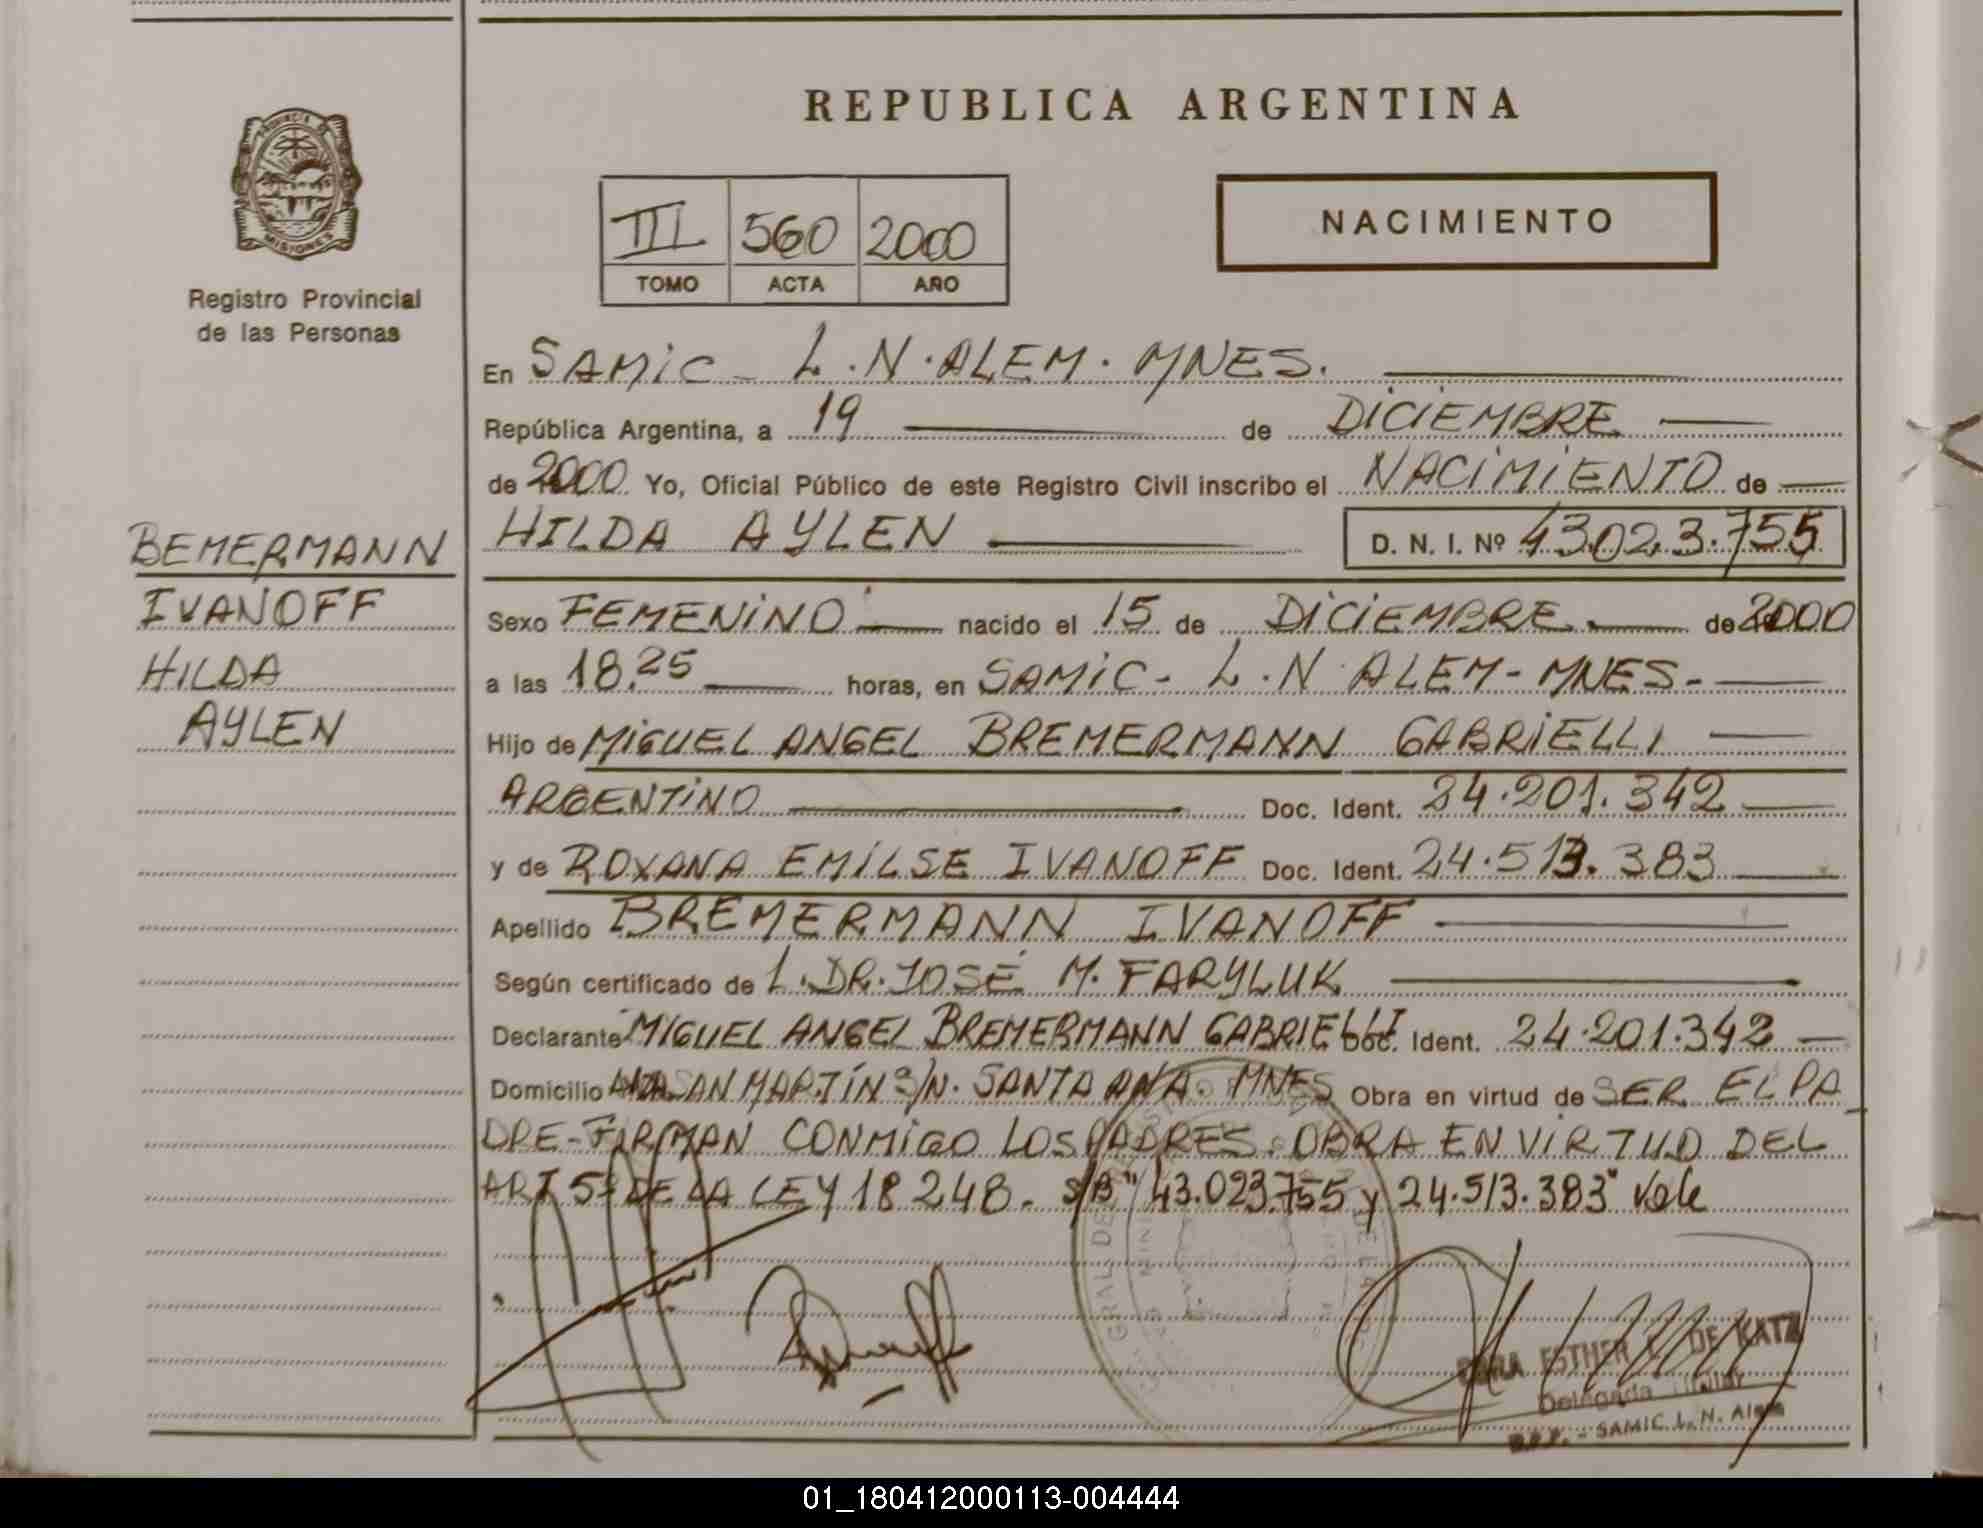 REPUBLICA ARGENTINA
PROVINCIA DE
MISIONES
Registro Provincial
de las Personas
III 560 2000
TOMO ACTA AÑO
NACIMIENTO
En SAMIC - L.N.ALEM. MNES.
República Argentina, a 19 de DICIEMBRE
de 2000 Yo, Oficial Público de este Registro Civil inscribo el NACIMIENTO de
HILDA AYLEN D. N. I. Nº 43.023.755
BEMERMANN
IVANOFF
HILDA
AYLEN
Sexo FEMENINO nacido el 15 de DICIEMBRE de 2000
a las 18,25 horas, en SAMIC - L.N ALEM - MNES -
Hijo de MIGUEL ANGEL BREMERMANN GABRIELLI
ARGENTINO Doc. Ident. 24.201.342
y de ROXANA EMILSE IVANOFF Doc. Ident. 24.513.383
Apellido BREMERMANN IVANOFF
Según certificado de L. DR. JOSÉ M. FARYLUK
Declarante MIGUEL ANGEL BREMERMANN GABRIELLI Doc. Ident. 24.201.342
Domicilio AVDA. SAN MARTÍN S/N. SANTA ANA. MNES Obra en virtud de SER EL PA
DRE - FIRMAN CONMIGO LOS PADRES. OBRA EN VIRTUD DEL
ART 5º DE LA LEY 18248 - S/B "43.023.755 y 24.513.383" Vale
ESTHER DE KATZ
Delegada Titular
SAMIC L. N. Alem
01_180412000113-004444